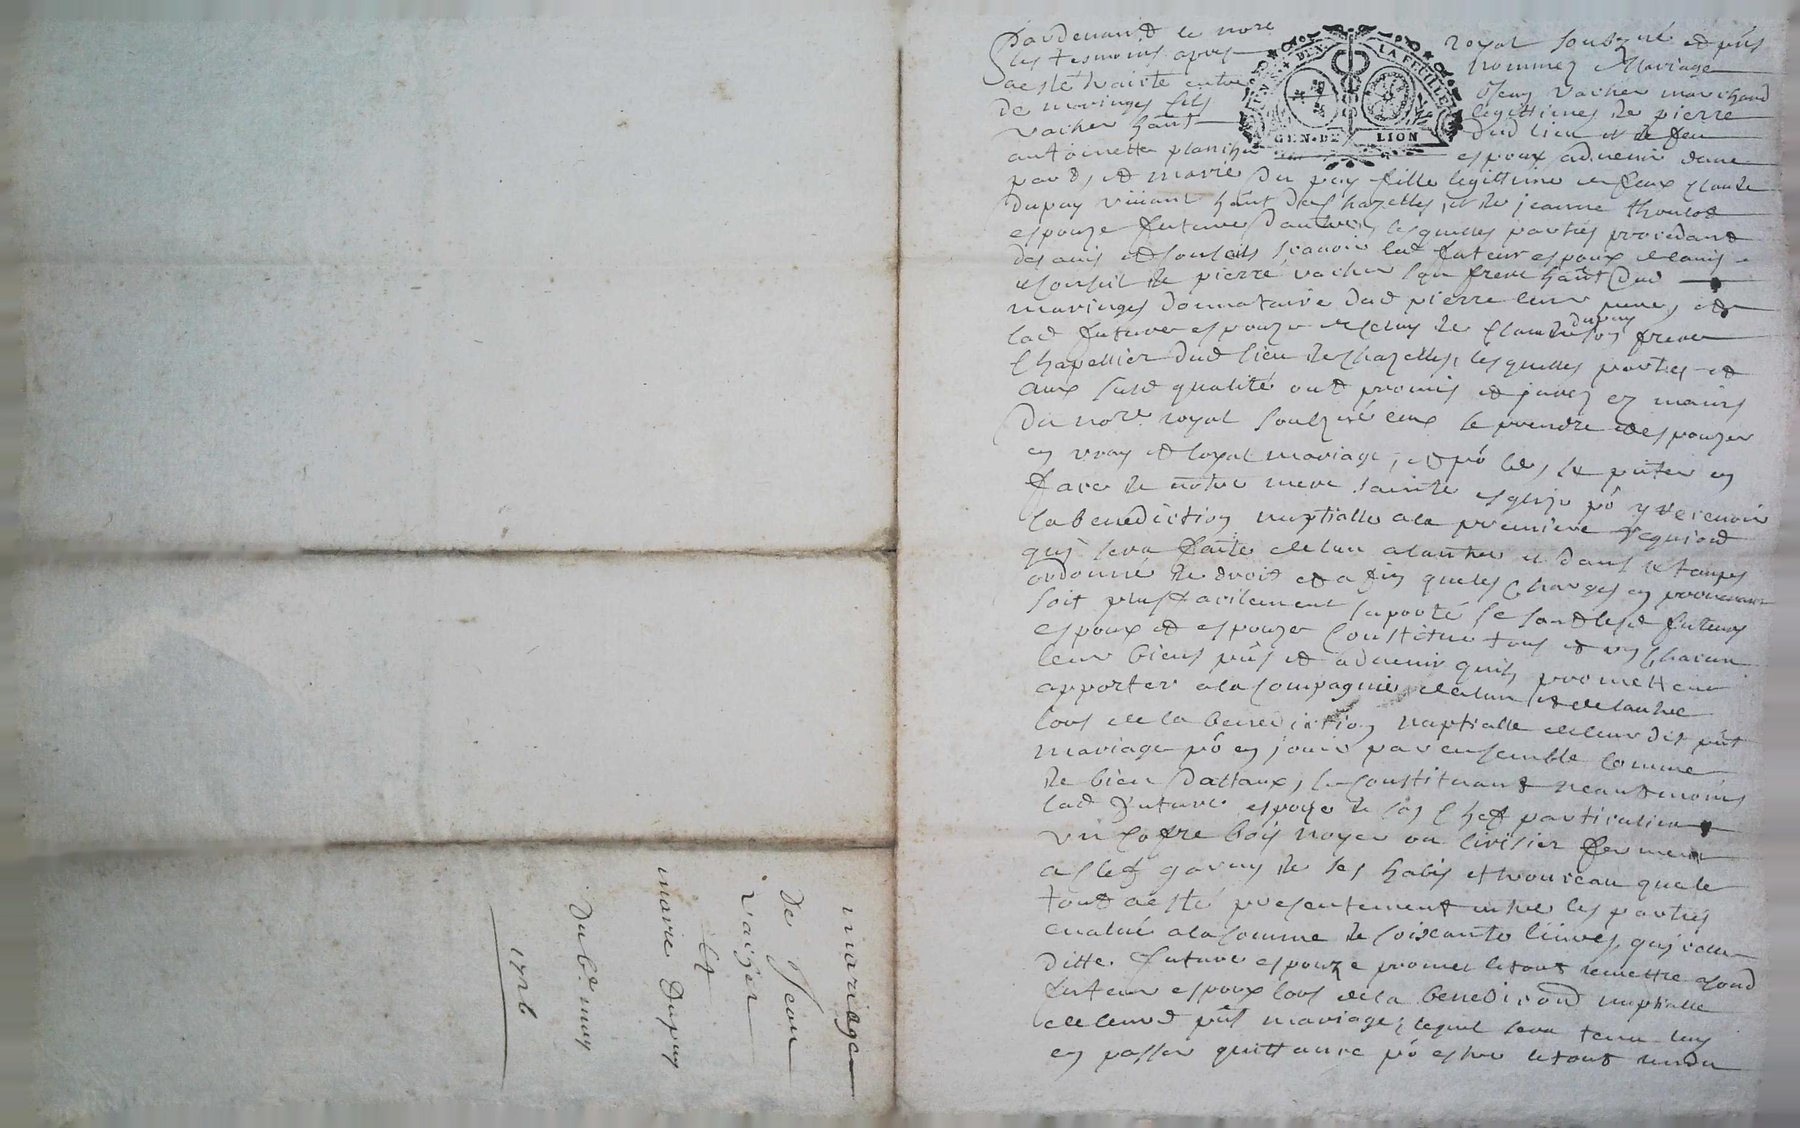 mariage
De Jean
vacher
Et
marie Dupuy
Du 6e may
1726
Pardevant le nore royal soubzné et pñs
les tesmoins apres nommez Mariage
a esté traité entre Jean vacher marchand
de maringes fils legittimes de pierre
vacher hãnt dud lieu et de feu
antoinette planchu espoux advenir dune
part, et marie du puy fille legittime de feux claude
dupuy vivant hãnt de Chazelles, et de jeanne thoulod
espouze future dautre, lesquelles parties procedant
des avis et conseils scavoir led futeur espoux de lavis
et conseil de pierre vacher son frere hãnt dud
maringes donnataire dud pierre leur pere, et
lad future espouze de celuy de Claude dupuy son frere
Chapellier dud lieu de chazelles, lesquelles parties et
aux susd qualité ont promis et jurez ez mains
Du nore royal soubzné eux se prendre et espouzer
en vray et loyal mariage, et pô ce, se pñter en
face de nõtre mere sainte esglize pô y recevoir
la benediction nuptialle a la premiere requiond
quj sera faite de lun a lautre et dans le temps
ordonné de droit et a fin que les charges en provenant
soit plus facilement suporté se sont lesd futeurs
espoux et espouze Constitue tous et un chacun
leur biens pñs et advenir quils promettent
apporter a la Compagnie de lun et de lautre
lors de la benediction nuptialle de leur dit pñt
mariage pô en jouir par ensemble comme
de bien dottaux, se constituant neantmoins
lad future espoze de son chef particulier
un Cofre bois noyer ou cerisier ferment
a clef garny de ses habis et trousseau que le
tout a esté presentement entre les parties
evalué a la somme de soixante livres, quj
ditte future espouze promet le tout remettre aud
futeur espoux lors de la benediond nuptialle
de leurd pñt mariage, lequel sera tenu luy
en passer quittance pô estre le tout rendu
GEN. DE LION
LA FEUILLE